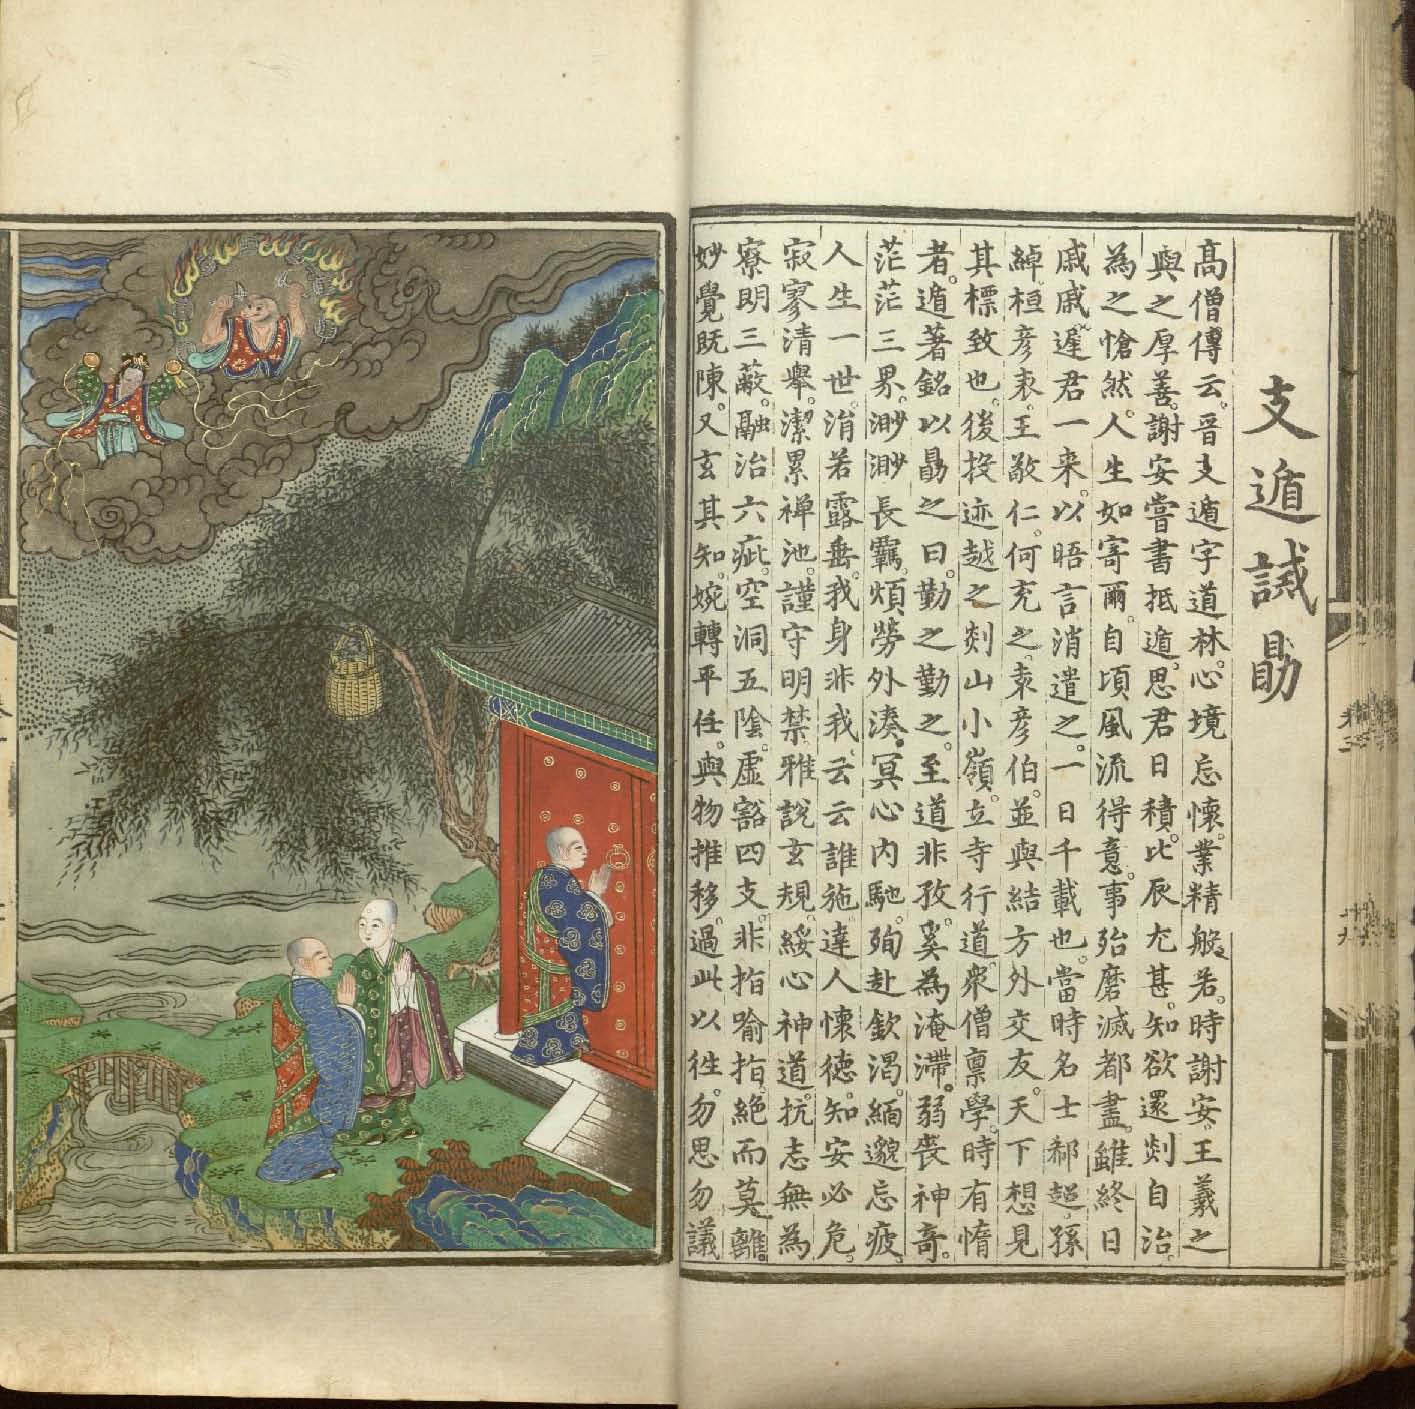 支遁誡勗
高僧傳云。晉支遁字道林。心境忘懷。業精般若。時謝安。王羲之
與之厚善。謝安嘗書抵遁。思君日積。比辰尤甚。知欲還剡自治。
為之愴然。人生如寄爾。自頃風流得意。事殆磨滅都盡。雖終日
戚戚遲君一來。以晤言消遣之。一日千載也。當時名士郗超。孫
綽。桓彥表。王敬仁。何充之。袁彥伯。並與結方外交友。天下想見
其標致也。後投迹越之剡山小嶺。立寺行道。眾僧稟學。時有惰
者。遁著銘以勗之曰。勤之勤之。至道非孜。奚為淹滯。弱喪神奇。
茫茫三界。渺渺長羈。煩勞外湊。冥心內馳。殉赴欽渴。緬邈忘疲。
人生一世。涓若露垂。我身非我。云云誰施。達人懷德。知安必危。
寂寥清舉。潔累禪池。謹守明禁。雅說玄規。綏心神道。抗志無為
寮朗三蔽。融治六疵。空洞五陰。虛豁四支。非指喻指。絕而莫離。
妙覺既陳。又玄其知。婉轉平任。與物推移。過此以往。勿思勿議
卷二
十九